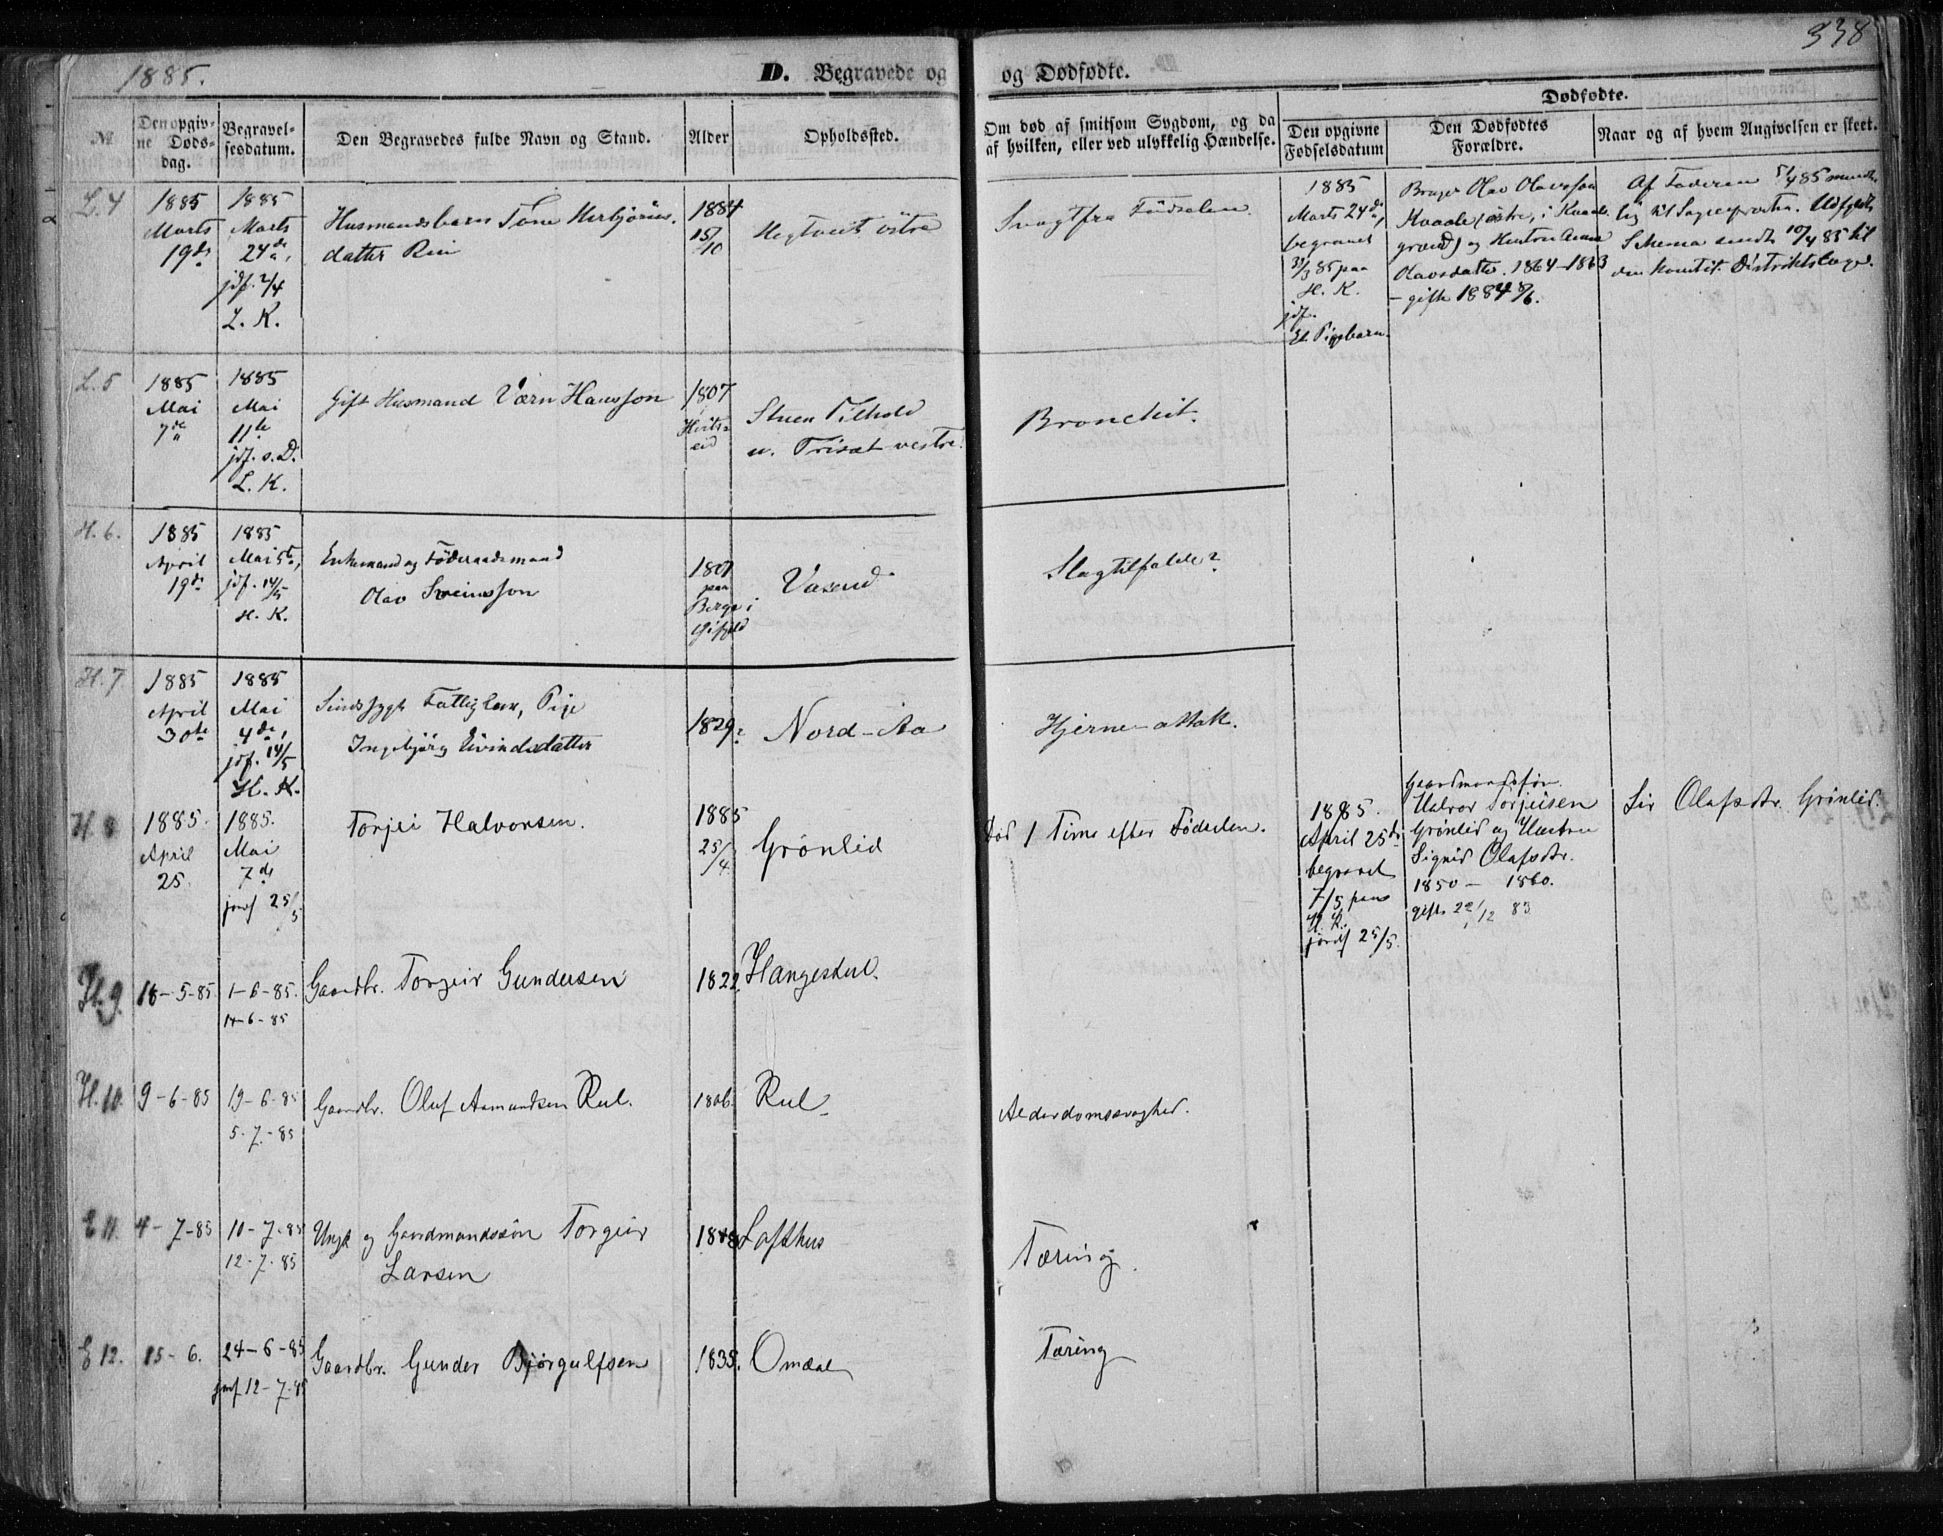 1885.
D. Begravede og
og Dødfødte.
338
Dødfødte.
M
Den opgiv-
ne Døds-
dag.
Begravel-
sesdatum.
Den Begravedes fulde Navn og Stand.
Alder
Opholdssted.
Om død af smitsom Sygdom, og da
af hvilken, eller ved ulykkelig Hændelse.
Den opgivne
Fødselsdatum
Den Dødfødtes
Forældre.
Naar og af hvem Angivelsen er skeet.
L. 4
1885
Marts
19de
1885
Marts
24de,
jdf. 2/4
L. K.
Husmandsbarn Tone Kerbjørns-
datter Rui
1884
15/10
Hegtveit östre
Svagt fra Födselen.
1885
Marts 24de,
begravet
31/3 85 paa
H. K.
jdf.
Et Pigebarn.
Bruger Olav Olavsson
Kvaale (östre, i Kvaale
grænd) og Hustru
Olavsdatter. 1864-1863
- gifte 1884 8/6.
Af Faderen 5/4 85 mundt-
lig til Sognepresten. Udfyldt
Schema sendt 10/4 85 til
den Distriktslæge.
L. 5
1885
Mai
7de
1885
Mai
11te
jdf. s. D.
L. K.
Gift Husmand Værn Hansson
1807
Hvits-
eid
Stuen Tilhold
u. Trisæt vestre.
Bronchit.
H. 6.
1885
April
19de
1885
Mai 5te,
jdf. 14/5
H. K.
Enkemand og Föderaadsmand
Olav Sveinsson
1801
paa
Berge i
Vasend
Slagtilfælde?
H. 7.
1885
April
30te
1885
Mai
4de,
jdf. 14/5
H. K.
Sindssygt Fattiglem, Pige
Ingebjörg Eivindsdatter
1829?
Nord-Aa
Hjerne-attak.
H 8
1885.
April
25.
1885.
Mai
7de
jordf 25/5
Torjei Halvorsen.
1885
25/4.
Grönlid
Död 1 Time efter Födselen.
1885.
April 25de
begravet
7/5 paa
H. K.
jordf 25/5.
Gaardmandssön
Halvor Torjeisen
Grönlid og Hustru
Signid Olafsdtr.
1850 - 1860.
gift 22/12 83
Olafsdtr. Grönlid.
H. 9.
18-5-85
1-6-85.
14-6-85
Gaardbr. Torgeir Gundersen
1822.
H. 10.
9-6-85
19-6-85
5-7-85
Gaardbr. Oluf Aamundsen Rul.
1806.
Rul.
Alderdomssvaghed.
E 11.
4-7-85
10-7-85
12-7-85
Ungk og Gaardmandssön Torgeir
Larsen
1848
Lofthus
Tæring.
E 12.
15-6.
24-6-85
jordf 12-7-85
Gaardbr. Gunder Bjørgulfsen
1835.
Omdal
Tæring